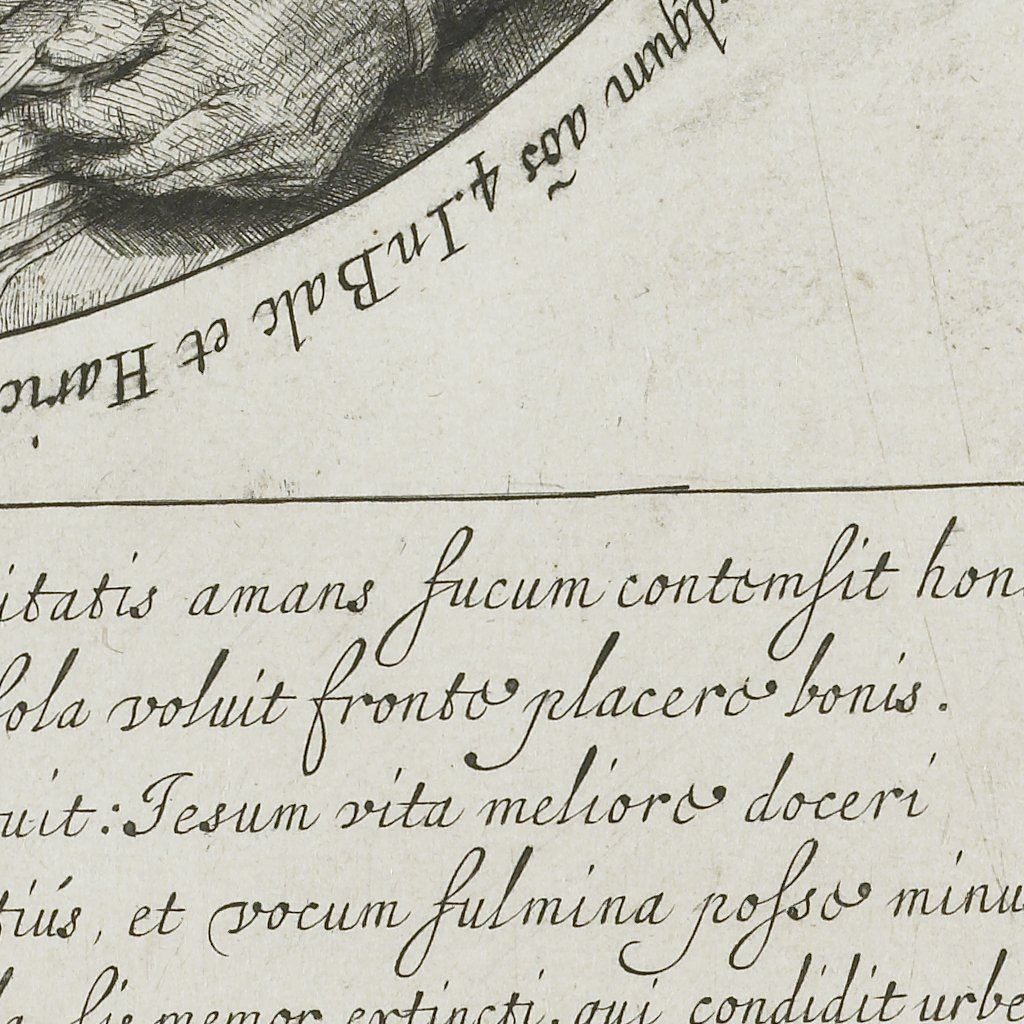 dgum aõs 4. In Balc et Haric
itatis amans fucum contemſit hon
ſola voluit fronte placere bonis.
uit: Jesum vita meliore doceri
tiús, et vocum fulmina poſse minu
Sis memor extincti, qui condidit urbe